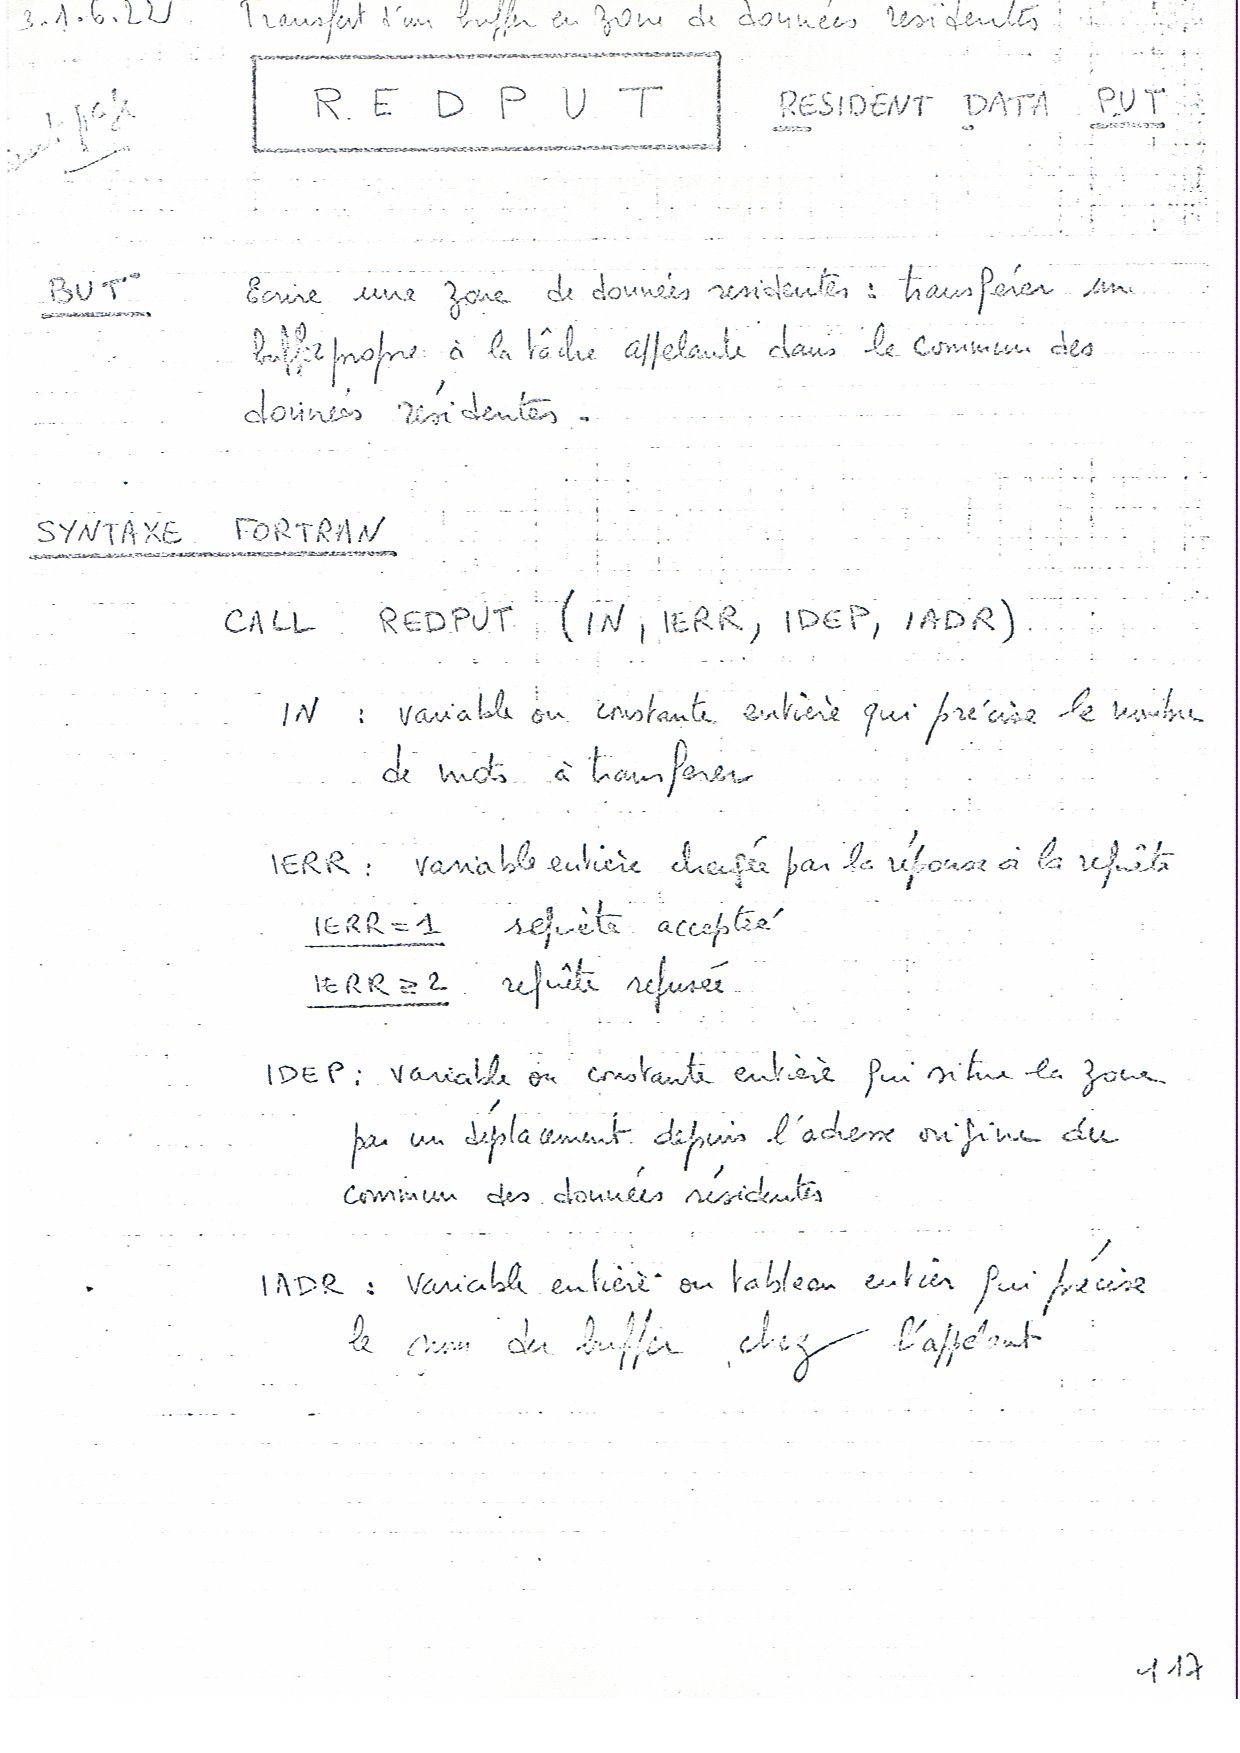 3.1.6.22 Transfert d'un buffer en zone de données residentes
REDPUT RESIDENT DATA PUT
BUT Ecrire une zone de données residentes : transférer un
buffer propre à la tâche appelante dans le commun des
données résidentes.
SYNTAXE FORTRAN
CALL REDPUT (IN, IERR, IDEP, IADR)
IN : variable ou constante entière qui précise le nombre
de mots à transferer
IERR : variable entière chargée par la réponse à la requête
IERR = 1 requète acceptée
IERR ≥ 2 requête refusée
IDEP : variable ou constante entière qui situe la zone
par un déplacement depuis l'adresse origine du
commun des données résidentes
IADR : variable entière ou tableau entier qui précise
le nom du buffer chez l'appelant
117